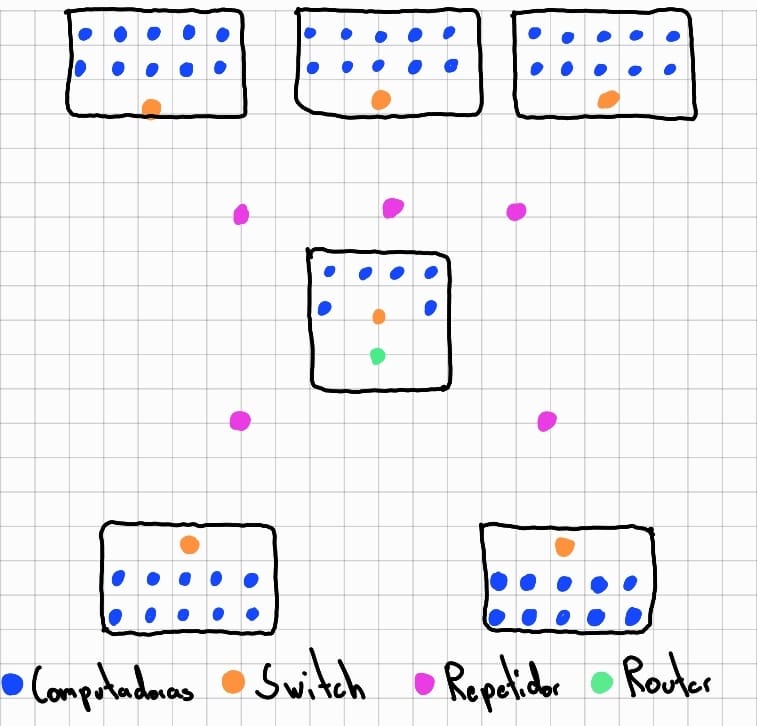 Computadoras Switch Repetidor Router